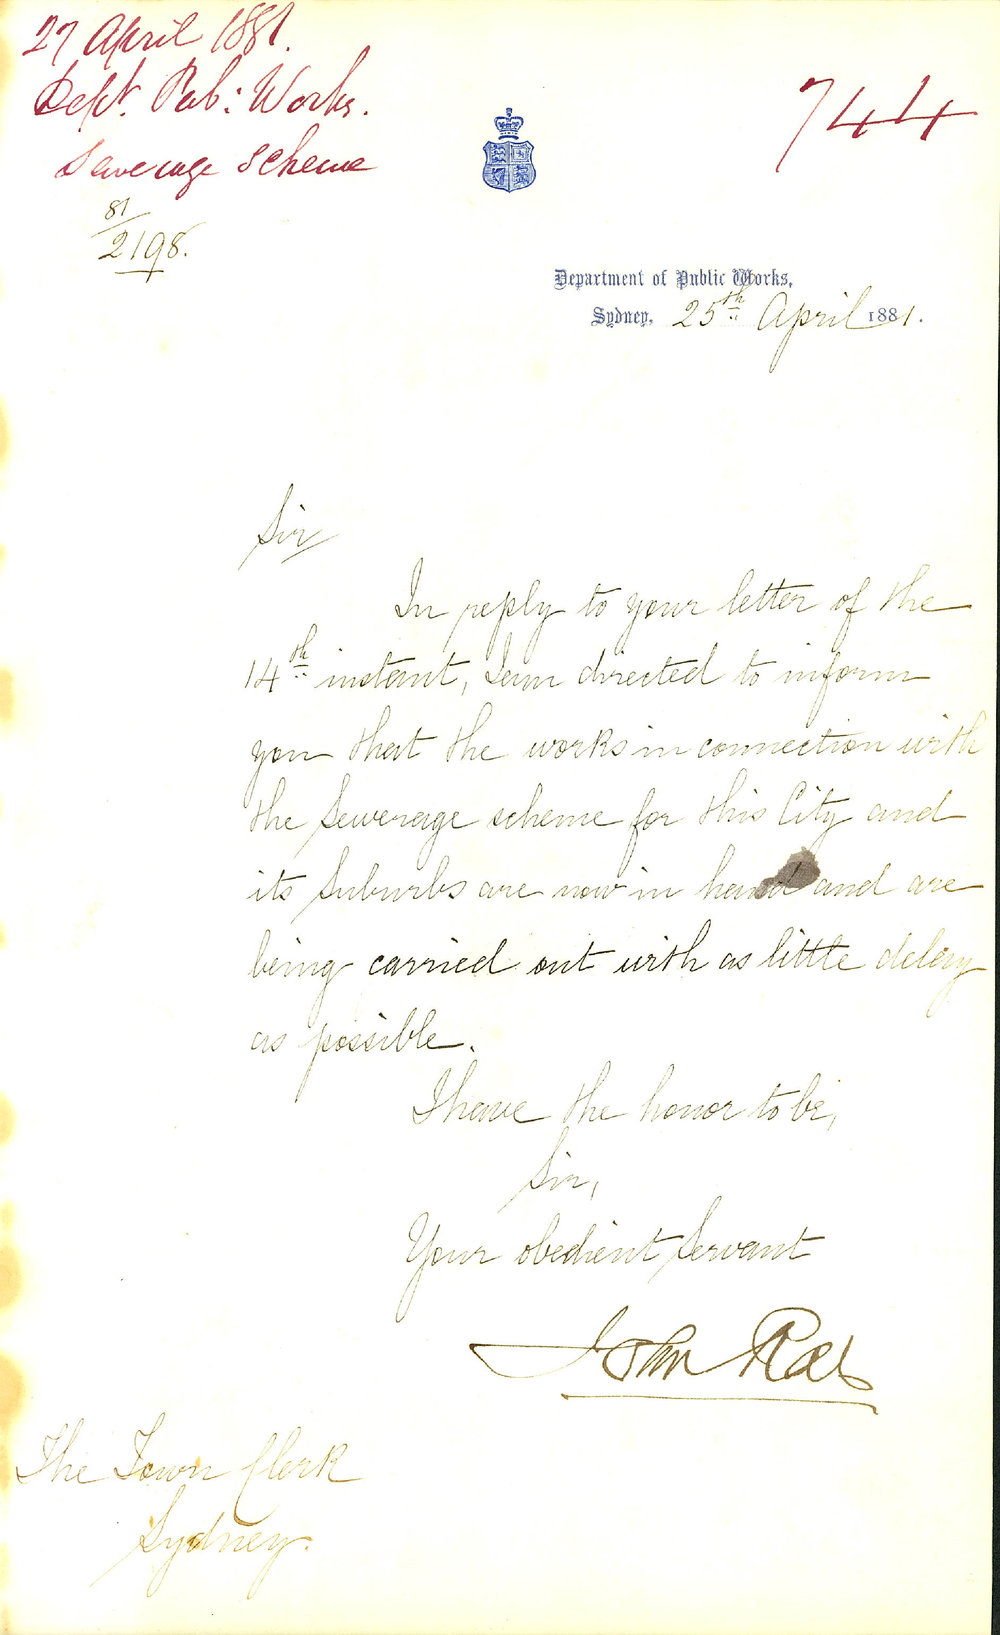 27 April 1881.
Dept. Pub: Works.
Sewerage Scheme
744
81/2198.
Department of Public Works,
Sydney, 25th April 1881.
Sir
In reply to your letter of the
14th instant, I am directed to inform
you that the works in connection with
the Sewerage scheme for this City and
its Suburbs are now in hand and are
being carried out with as little delay
as possible.
I have the honor to be,
Sir,
Your obedient Servant
John Rae
The Town Clerk
Sydney.